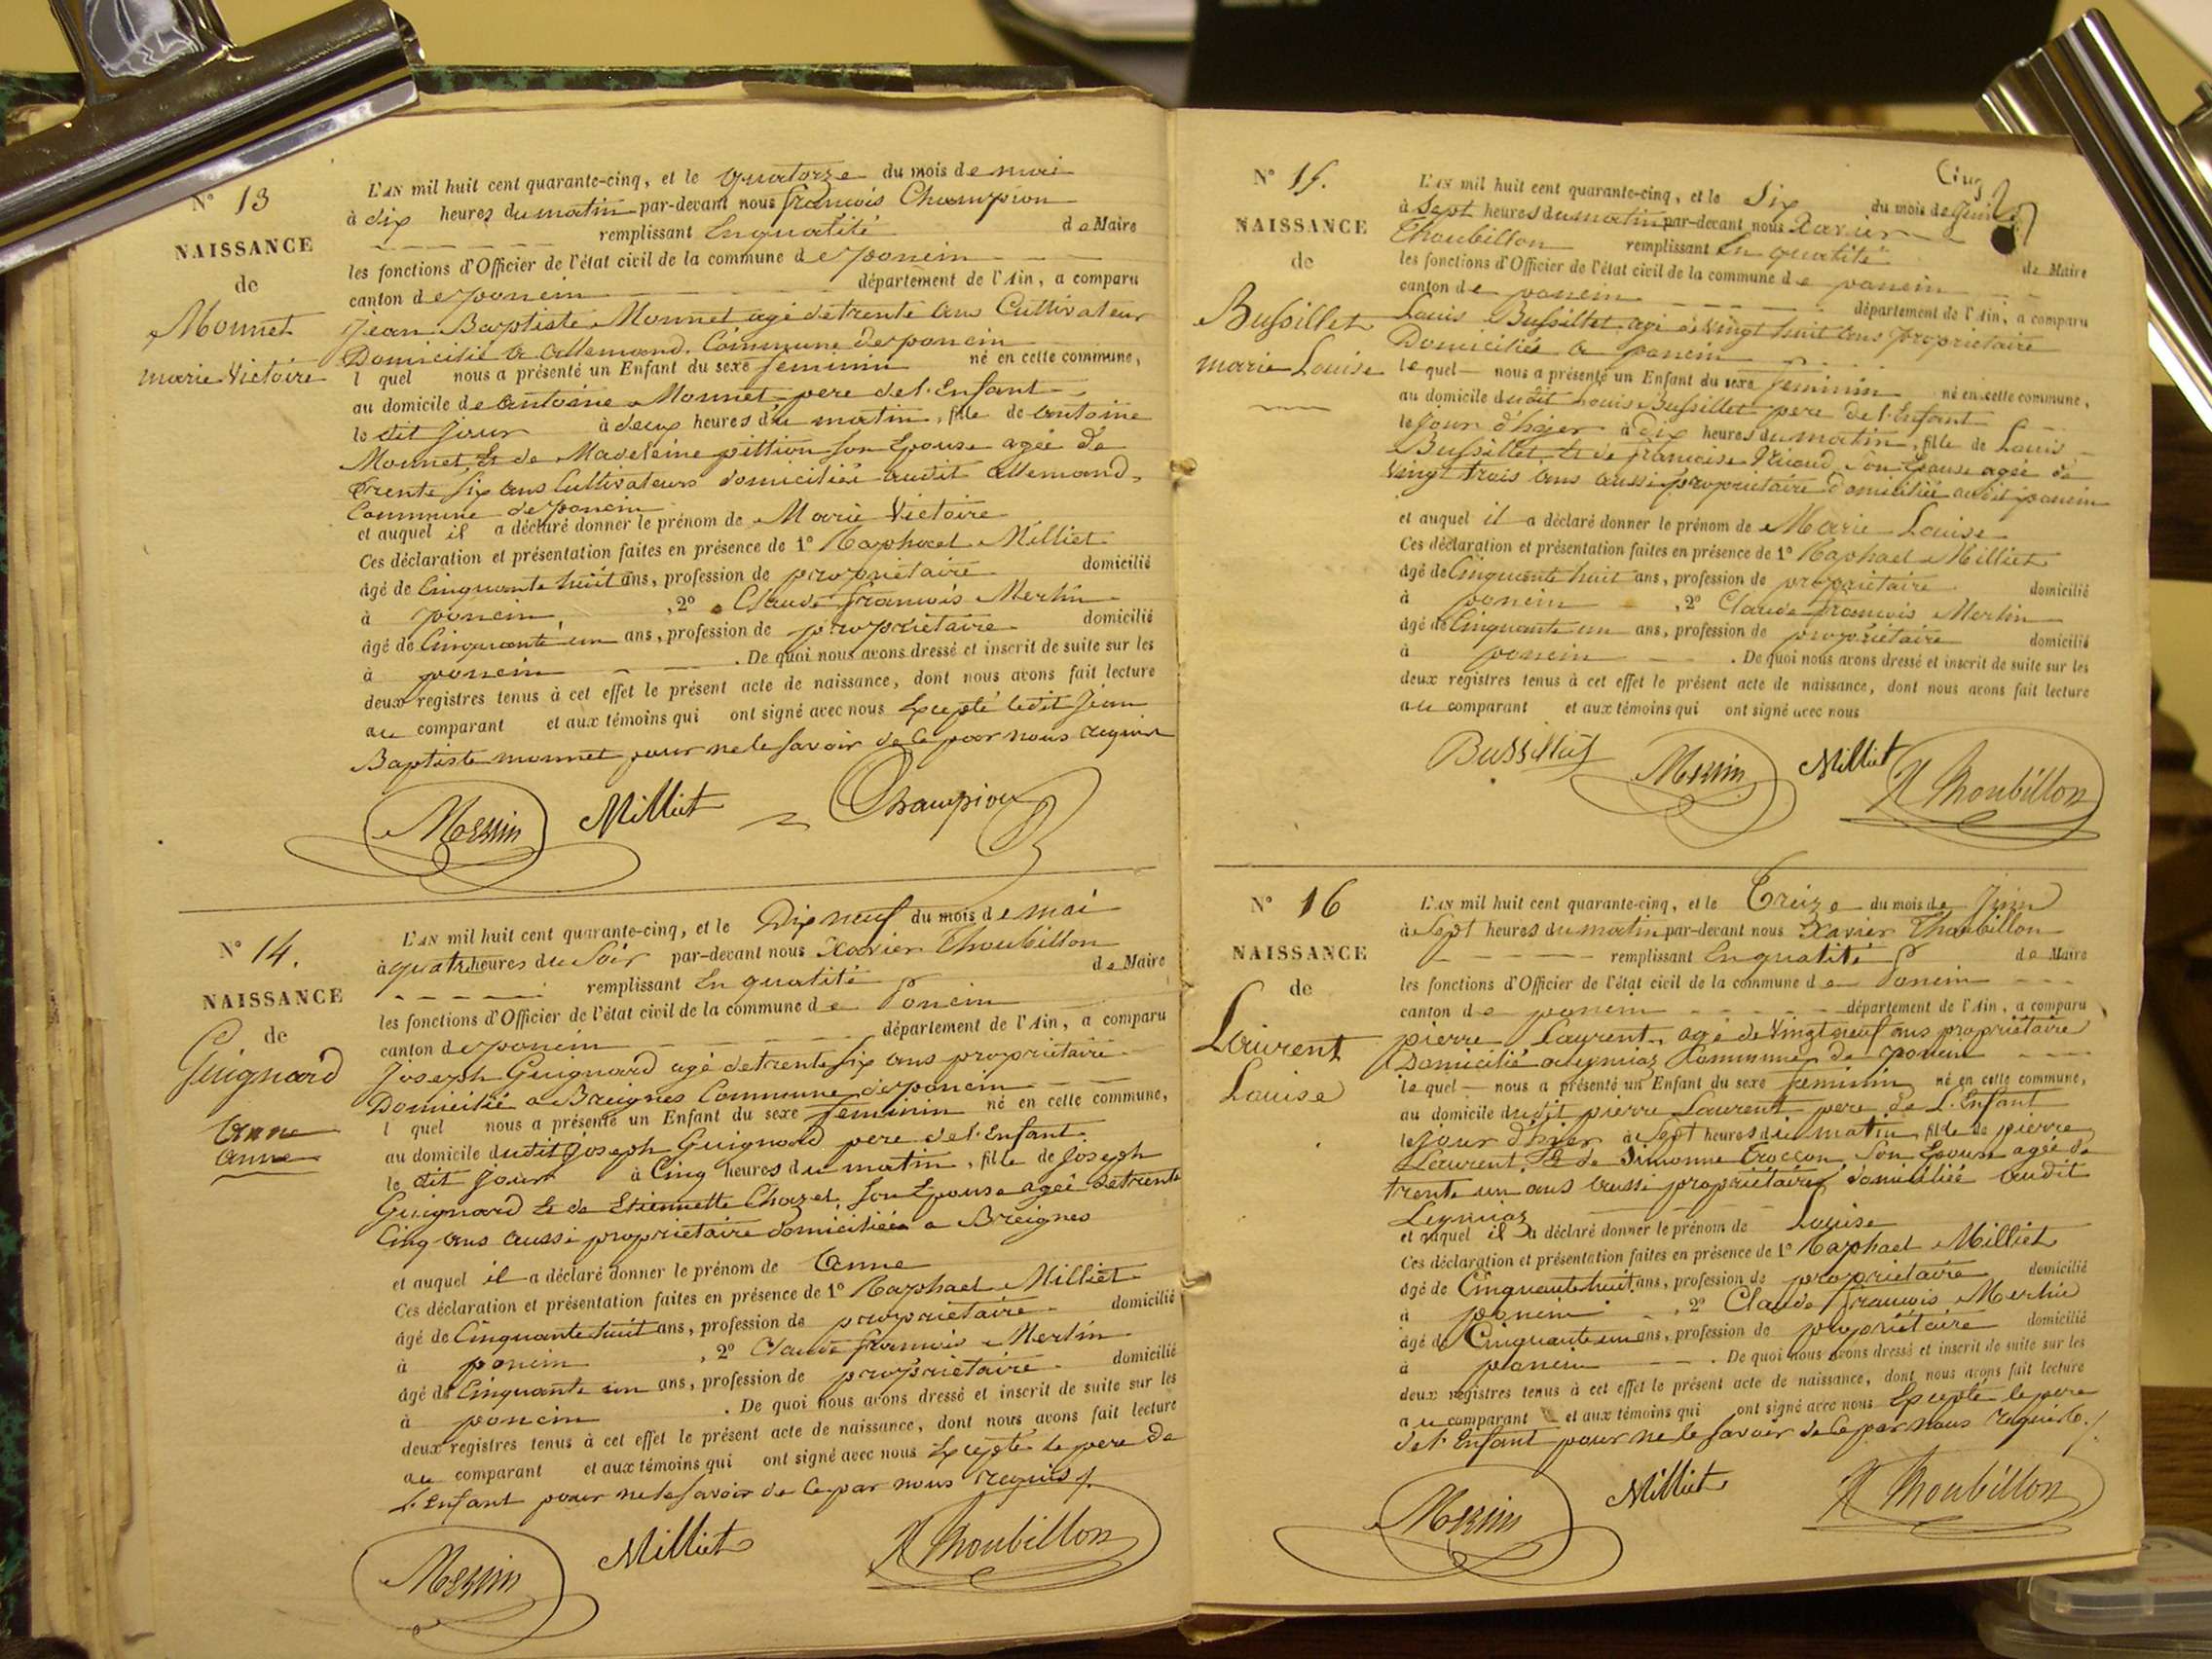 N° 13
NAISSANCE
de
Monnet
marie Victoire
L'AN mil huit cent quarante-cinq, et le quatorze du mois de mai
à dix heures du matin par-devant nous françois Champion
remplissant En qualité de Maire
les fonctions d'Officier de l'état civil de la commune de poncin
canton de poncin département de l'Ain, a comparu
Jean Baptiste Monnet agé de trente ans Cultivateur
Domicilié a allemand. Commune de poncin
l quel nous a présenté un Enfant du sexe feminin né en cette commune,
au domicile de antoine Monnet pere de l'Enfant
le dit jour à deux heures du matin, fille de antoine
Monnet Et de Madeleine pittion son Epouse agée de
trente six ans Cultivateurs domiciliés audit allemand,
Commune de poncin
et auquel il a déclaré donner le prénom de Marie Victoire
Ces déclaration et présentation faites en présence de 1° Raphael Milliet
âgé de Cinquante huit ans, profession de propriétaire domicilié
à poncin , 2° Claude françois Merlin
âgé de Cinquante un ans, profession de propriétaire domicilié
à poncin . De quoi nous avons dressé et inscrit de suite sur les
deux registres tenus à cet effet le présent acte de naissance, dont nous avons fait lecture
au comparant et aux témoins qui ont signé avec nous Excepté ledit Jean
Baptiste monnet pour ne le savoir de ce par nous requis
Merlin Milliet Champion
N° 14.
NAISSANCE
de
Guignard
anne
anne
L'AN mil huit cent quarante-cinq, et le Dix neuf du mois de mai
à quatre heures du Soir par-devant nous Xavier Thoubillon
remplissant En qualité de Maire
les fonctions d'Officier de l'état civil de la commune de Poncin
canton de poncin département de l'Ain, a comparu
Joseph Guignard agé de trente six ans propriétaire
Domicilié a Breignes Commune de poncin
l quel nous a présenté un Enfant du sexe feminin né en cette commune,
au domicile dudit Joseph Guignard pere de l'Enfant
le dit jour à Cinq heures du matin, fille de Joseph
Guignard Et de Etiennette Chazel son Epouse agée de trente
Cinq ans aussi propriétaire domiciliée a Breignes
et auquel il a déclaré donner le prénom de anne
Ces déclaration et présentation faites en présence de 1° Raphael Milliet
âgé de Cinquante huit ans, profession de propriétaire domicilié
à poncin , 2° Claude françois Merlin
âgé de Cinquante un ans, profession de propriétaire domicilié
à poncin . De quoi nous avons dressé et inscrit de suite sur les
deux registres tenus à cet effet le présent acte de naissance, dont nous avons fait lecture
au comparant et aux témoins qui ont signé avec nous Excepté le pere de
l'Enfant pour ne le savoir de ce par nous requis
Merlin Milliet X Thoubillon
Cinq
N° 15.
NAISSANCE
de
Bussillet
marie Louise
L'AN mil huit cent quarante-cinq, et le Six du mois de Juin
à Sept heures du matin par-devant nous Xavier
Thoubillon remplissant En qualité de Maire
les fonctions d'Officier de l'état civil de la commune de poncin
canton de poncin département de l'Ain, a comparu
Louis Bussillet agé de vingt huit ans propriétaire
Domiciliés a poncin
le quel nous a présenté un Enfant du sexe feminin né en cette commune,
au domicile dudit Louis Bussillet pere de l'Enfant
le jour d'hier à dix heures du matin, fille de Louis
Bussillet Et de françoise son Epouse agée de
Vingt trois ans aussi propriétaire domiciliée audit poncin
et auquel il a déclaré donner le prénom de Marie Louise
Ces déclaration et présentation faites en présence de 1° Raphael Milliet
âgé de Cinquante huit ans, profession de propriétaire domicilié
à poncin , 2° Claude françois Merlin
âgé de Cinquante un ans, profession de propriétaire domicilié
à poncin . De quoi nous avons dressé et inscrit de suite sur les
deux registres tenus à cet effet le présent acte de naissance, dont nous avons fait lecture
au comparant et aux témoins qui ont signé avec nous
Bussillet Merlin Milliet X Thoubillon
N° 16
NAISSANCE
de
Laurent
Louise
L'AN mil huit cent quarante-cinq, et le Treize du mois de Juin
à Sept heures du matin par-devant nous Xavier Thoubillon
remplissant En qualité de Maire
les fonctions d'Officier de l'état civil de la commune de Poncin
canton de poncin département de l'Ain, a comparu
pierre Laurent, agé de Vingt neuf ans propriétaire
Domicilié a Leymiaz Commune de poncin
le quel nous a présenté un Enfant du sexe feminin né en cette commune,
au domicile dudit pierre Laurent pere de L'Enfant
le jour d'hier à Sept heures du matin, fille de pierre
Laurent, Et de Simonne Trocçon son Epouse agée de
trente un ans aussi propriétaires domiciliée audit
Leymiaz
et auquel il a déclaré donner le prénom de Louise
Ces déclaration et présentation faites en présence de 1° Raphael Milliet
âgé de Cinquante huit ans, profession de propriétaire domicilié
à poncin , 2° Claude françois Merlin
âgé de Cinquante un ans, profession de propriétaire domicilié
à poncin . De quoi nous avons dressé et inscrit de suite sur les
deux registres tenus à cet effet le présent acte de naissance, dont nous avons fait lecture
au comparant et aux témoins qui ont signé avec nous Excepté le pere
de l'Enfant pour ne le savoir de ce par nous requis
Merlin Milliet X Thoubillon